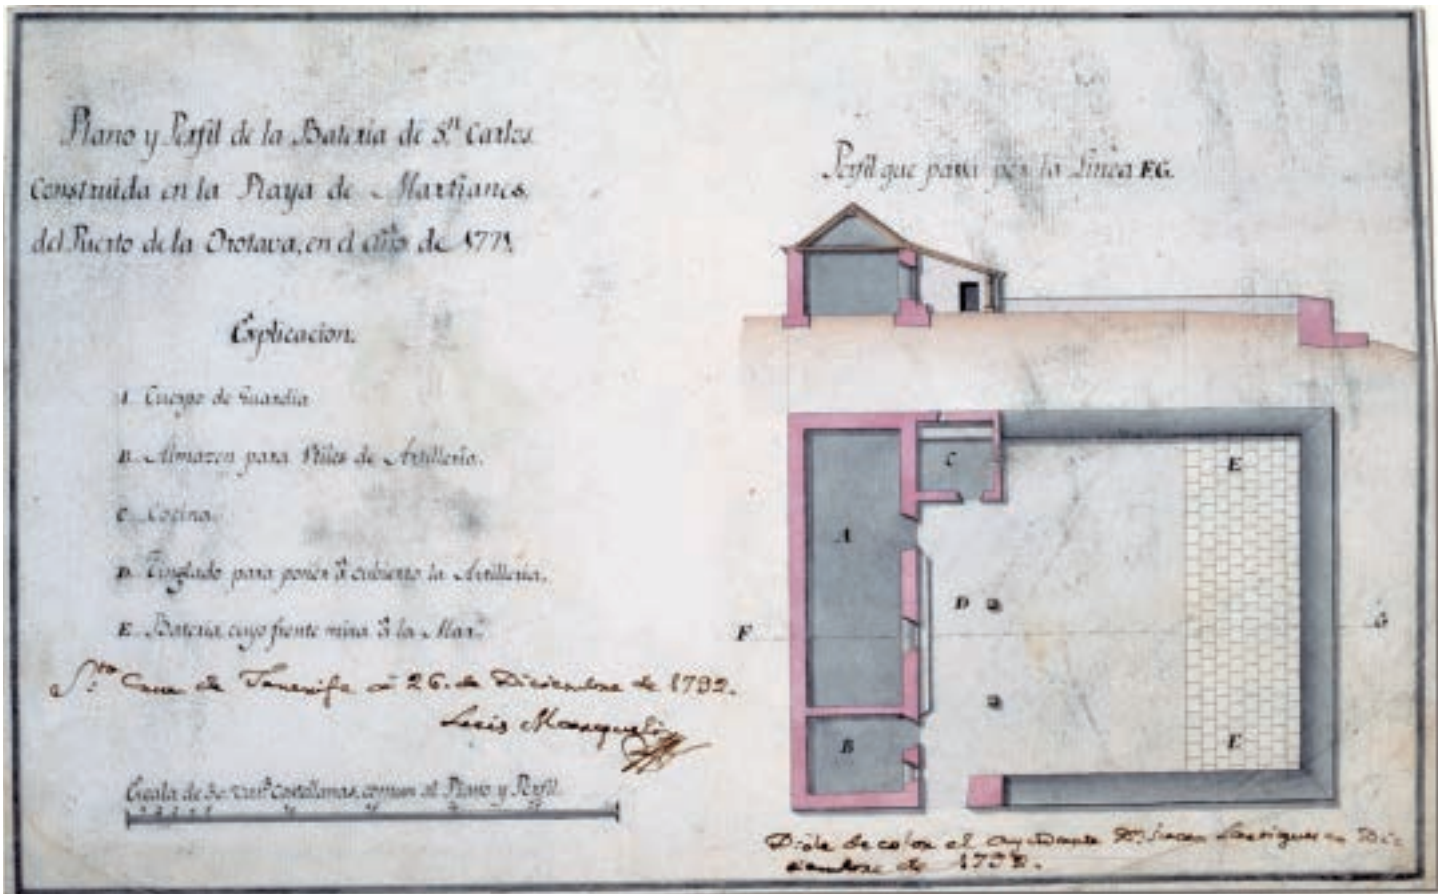 Plano y Perfil de la Bateria de Sn. Carlos
Construida en la Playa de Martianes
del Puerto de la Orotava, en el año de 1771
Explicacion.
A Cuerpo de Guardia
B Almazen para Utiles de Artilleria.
C Cocina.
D Tinglado para poner â cubierto la Artilleria.
E Bateria, cuyo frente mira â la Mar.
Sta. Cruz de Tenerife à 26. de Diciembre de 1792.
Luis Marqueli
Escala de 30 vars. Castellanas, comun al Plano y Perfil.
Perfil que pasa por la Linea FG.
C
E
A
D
F
G
B
E
Dióle de color el ayudante Dn.
de 1792.